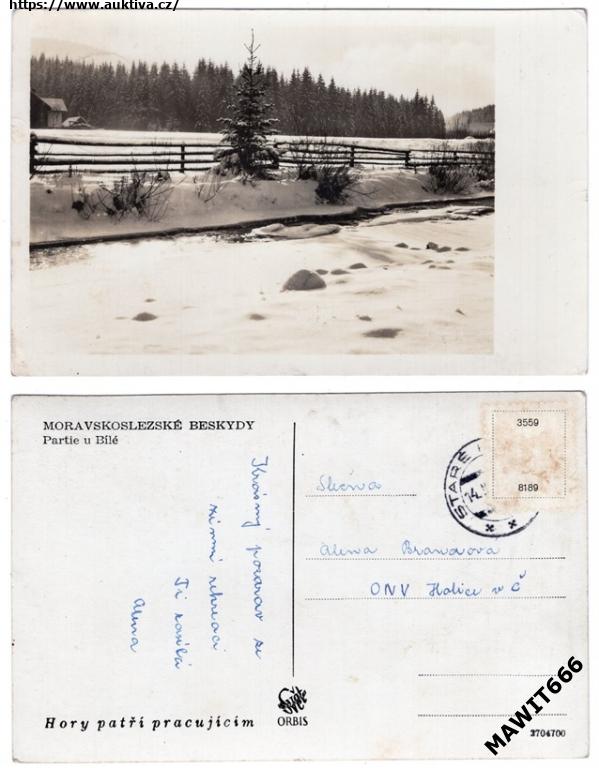 https://www.auktiva.cz/
MORAVSKOSLEZSKÉ BESKYDY
Partie u Bílé
Krásný pozdrav ze
zimní rekreaci
Ti zasílá
Alena
Hory patří pracujícím
ORBIS
3559
8189
STARÉ
14.
Slečna
Alena Brandova
ONV Holice v Č
2704700
MAWIT666